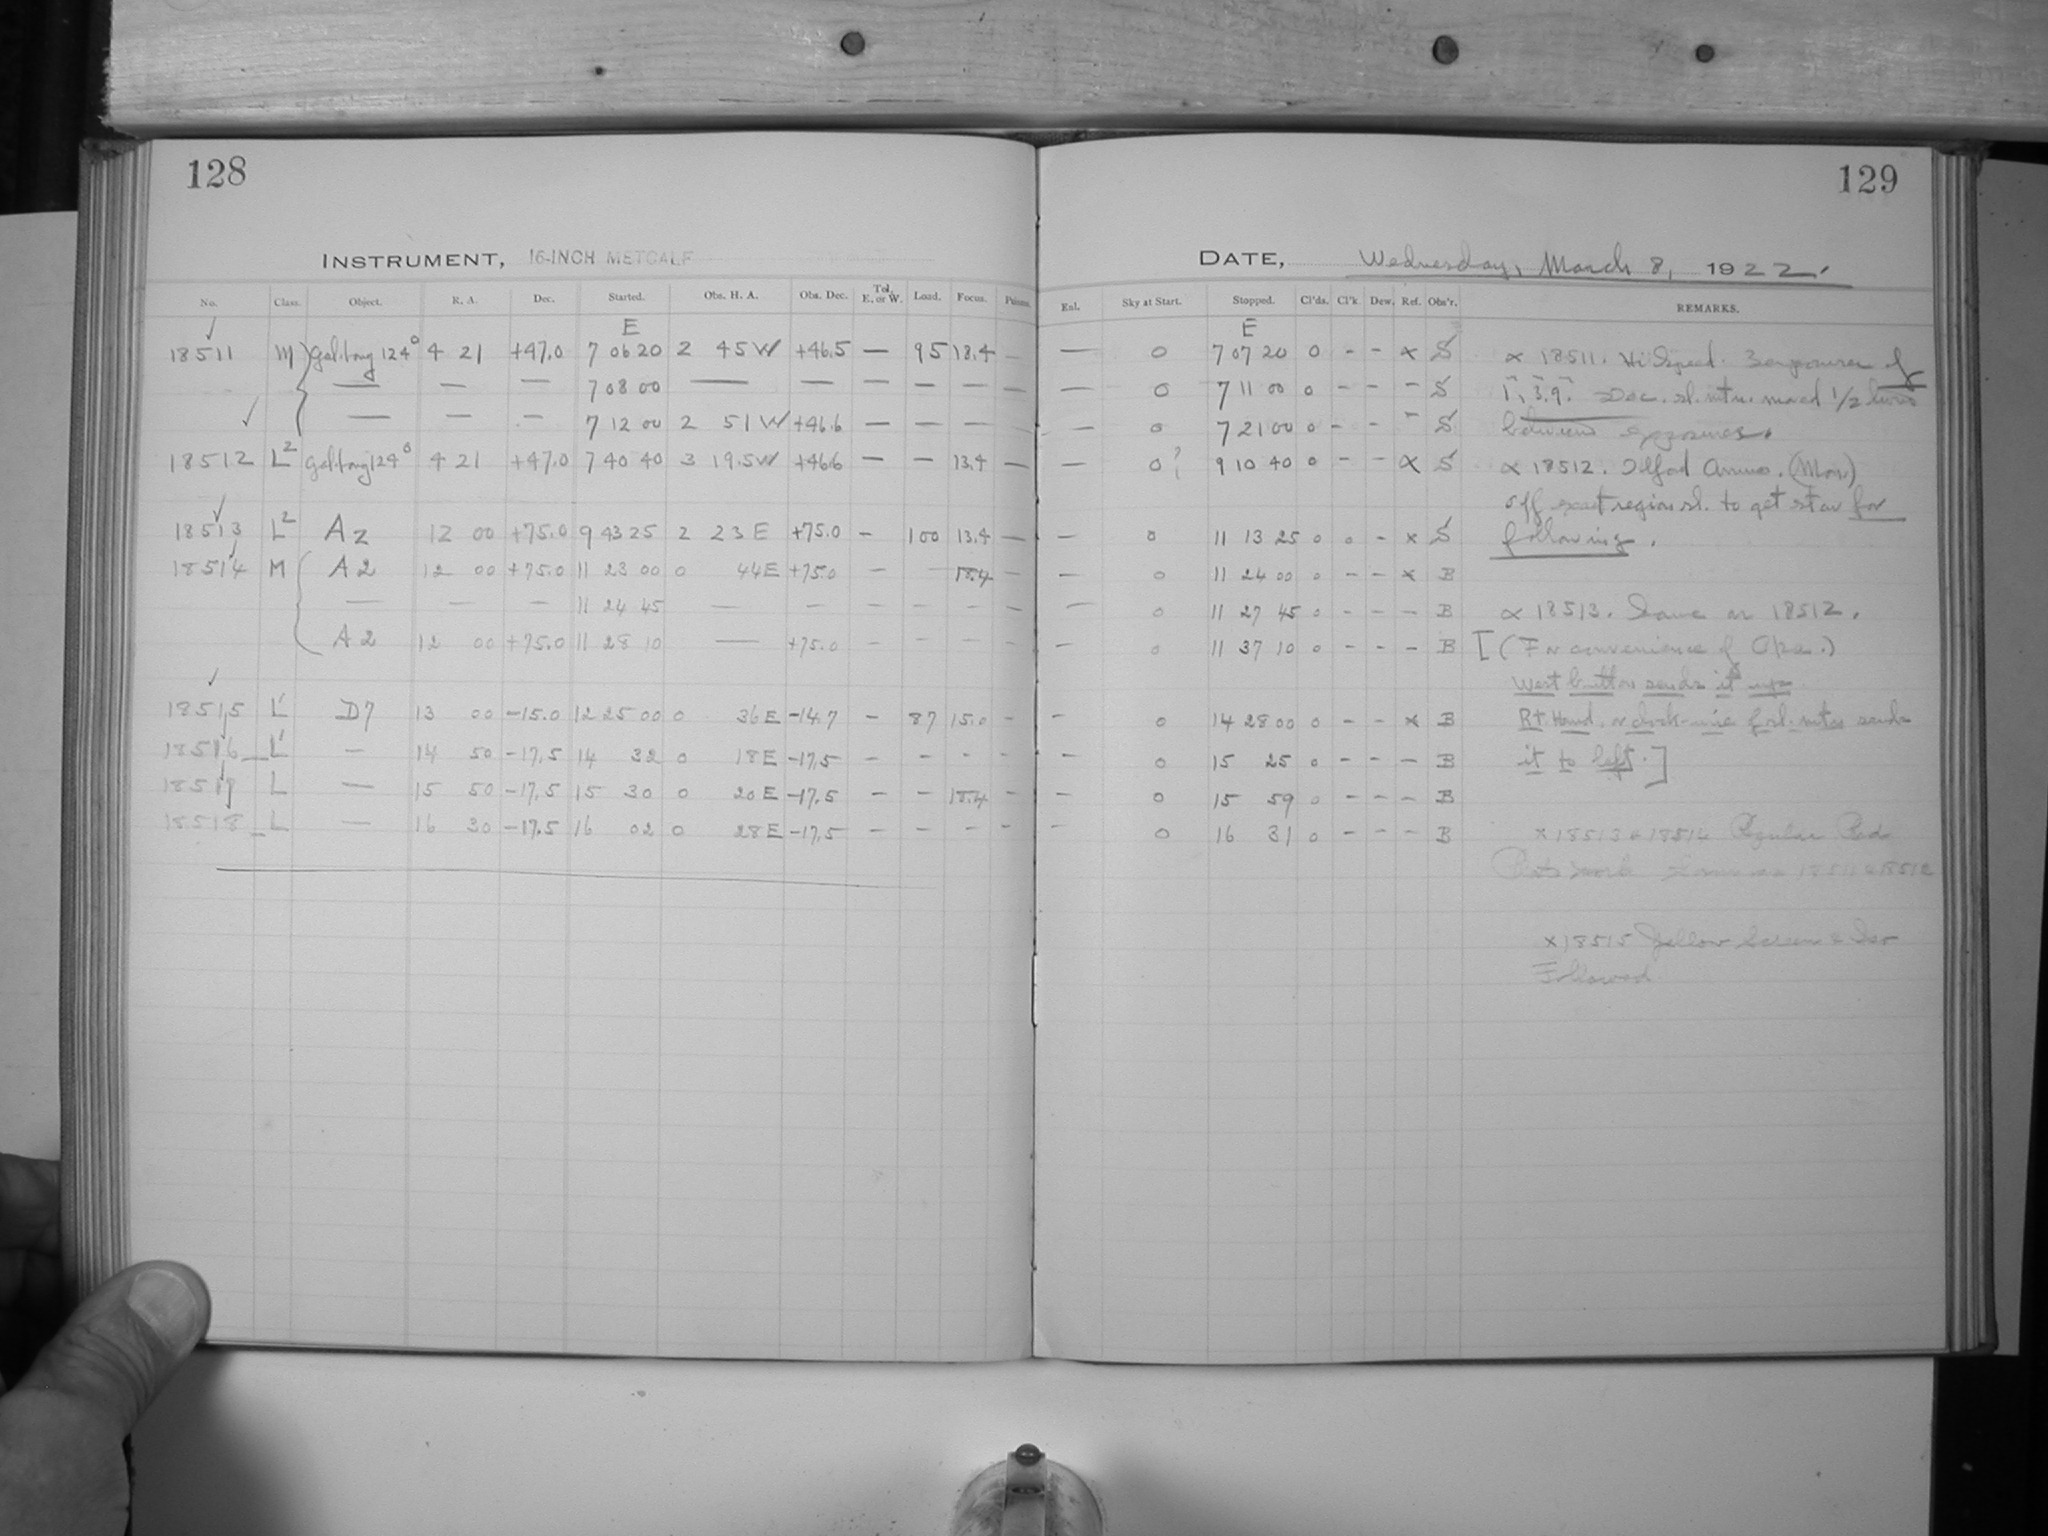 128
INSTRUMENT, 16-INCH METCALF
No. Class. Object. R. A. Dec. Started. Obs. H. A. Obs. Dec. Tel. E. or W. Load. Focus.
E
18511 M Gal. Long 124° 4 21 +47.0 7 06 20 2 45 W +46.5 — 95 13.4 —
— — — 7 08 00 — — — — — —
— — — 7 12 00 2 51 W +46.6 — — — —
18512 L2 Gal. Long 124° 4 21 +47.0 7 40 40 3 19.5 W +46.6 — — 13.4 —
18513 L2 A2 12 00 +75.0 9 43 25 2 23 E +75.0 — 100 13.4 —
18514 M A2 12 00 +75.0 11 23 00 0 44 E +75.0 — 13.4 —
— — — 11 24 45 — — — — — —
A2 12 00 +75.0 11 28 10 — +75.0 — — — —
18515 L' D7 13 00 -15.0 12 25 00 0 36 E -14.7 — 87 15.0 —
18516 L' — 14 50 -17.5 14 32 0 18 E -17.5 — — — —
18517 L — 15 50 -17.5 15 30 0 20 E -17.5 — — 13.4 —
18518 L — 16 30 -17.5 16 02 0 28 E -17.5 — — — —
129
DATE, Wednesday, March 8, 1922.
Enl. Sky at Start. Stopped. Cl'ds. Cl'k. Dew. Ref. Obs'r. REMARKS.
E
— 0 7 07 20 0 - - x S
— 0 7 11 00 0 - - - S
— 0 7 21 00 0 - - - S
— 0? 9 10 40 0 - - x S
— 0 11 13 25 0 0 - x S
— 0 11 24 00 0 - - x B
— 0 11 27 45 0 - - - B
— 0 11 37 10 0 - - - B
— 0 14 28 00 0 - - x B
— 0 15 25 0 - - - B
— 0 15 59 0 - - - B
— 0 16 31 0 - - - B
x 18511. Hi Speed. 3 exposures of
1, 3, 9. Dec. sl. mtn. moved 1/2 
between exposures.
x 18512. Ilford (Mon)
off exact region sl. to get star for
following.
x 18513. Same as 18512.
[(For convenience of Obs.)
West button sends it up.
Rt. Hand or clock-wise of sl. mtn sends
it to left.]
x 18513 & 18514 Regular
work Same as 18511 & 18512
x 18515 Yellow Screen & Iso
Followed